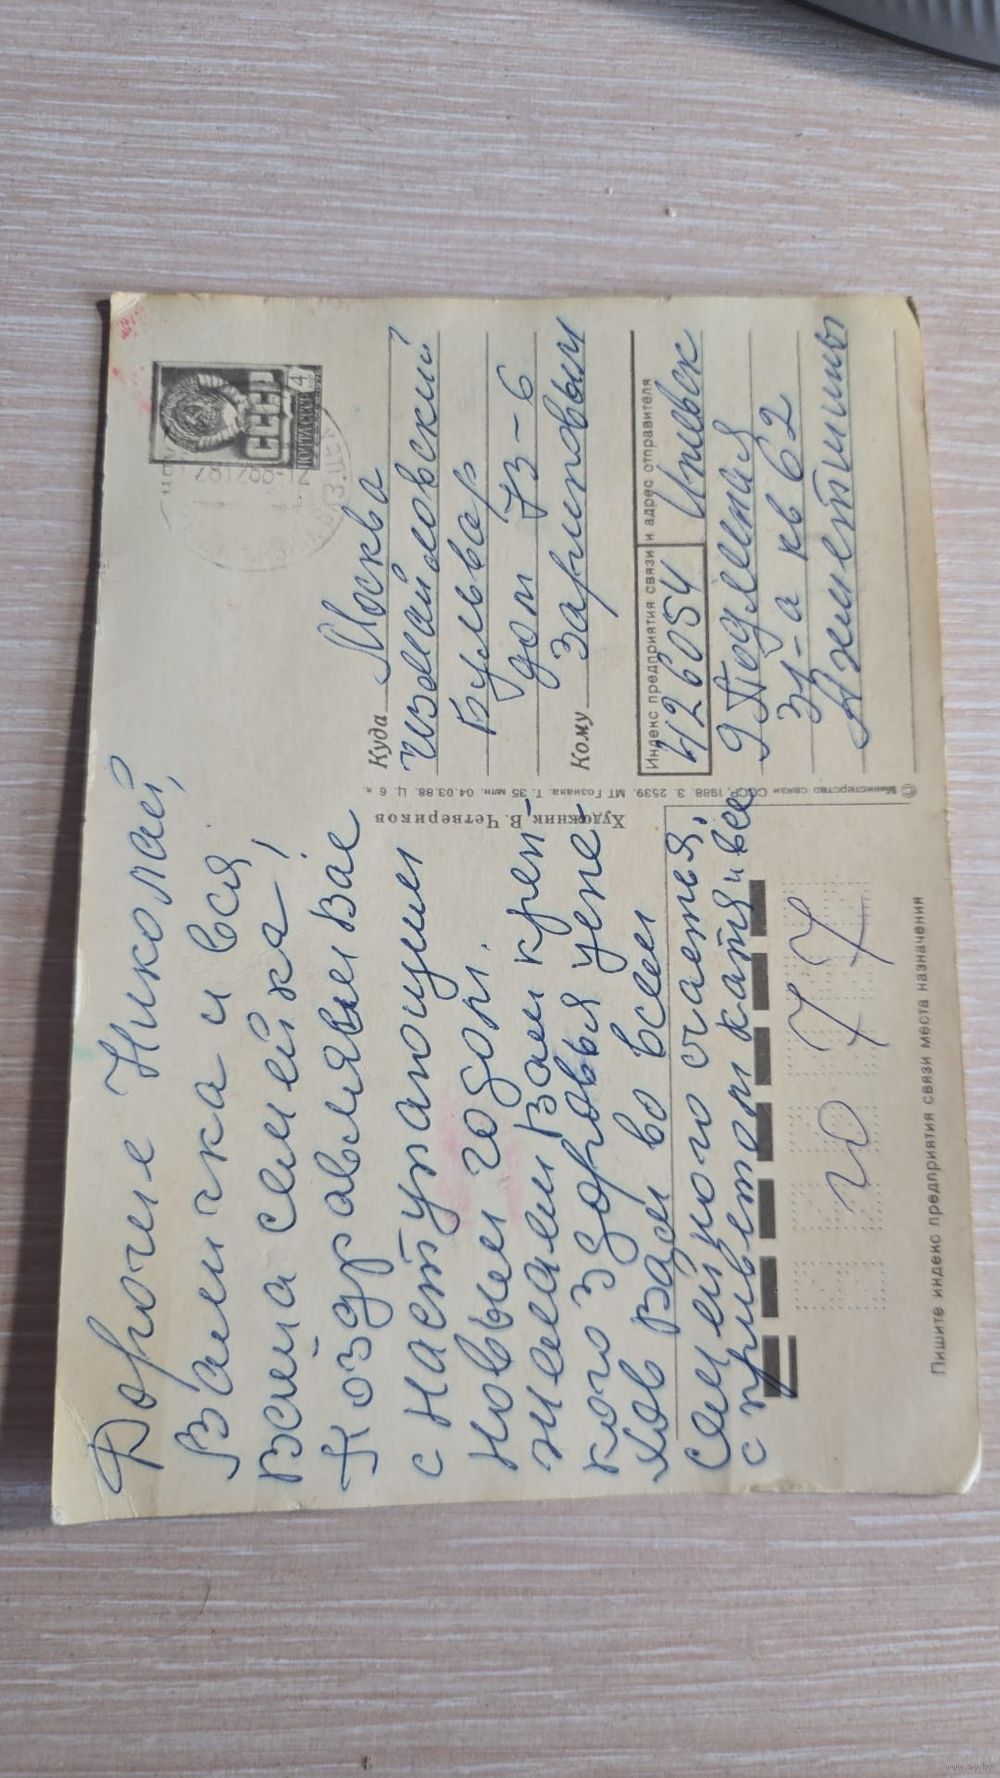 Дорогие Николай,
Валичка и вся
Ваша семейка!
Поздравляем Вас
с наступающим
новым годом.
желаем Вам креп-
кого здоровья успе-
хов Вам во всем
семейного счастья,
с приветом катя и все
СССР
ПОЧТА СССР 4
Куда Москва
измайловский
Бульвар
дом 73-6
Кому Зариповым
Индекс предприятия связи и адрес отправителя
426054 Ижевск
9 Подлесная
31-а кв 62
Ахметшины
© Министерство связи СССР, 1988. З. 2539. МТ Гознака. Т. 35 млн. 04.03.88. Ц. 6 к.
Художник В. Четвериков
20 77
Пишите индекс предприятия связи места назначения
www.ay.by